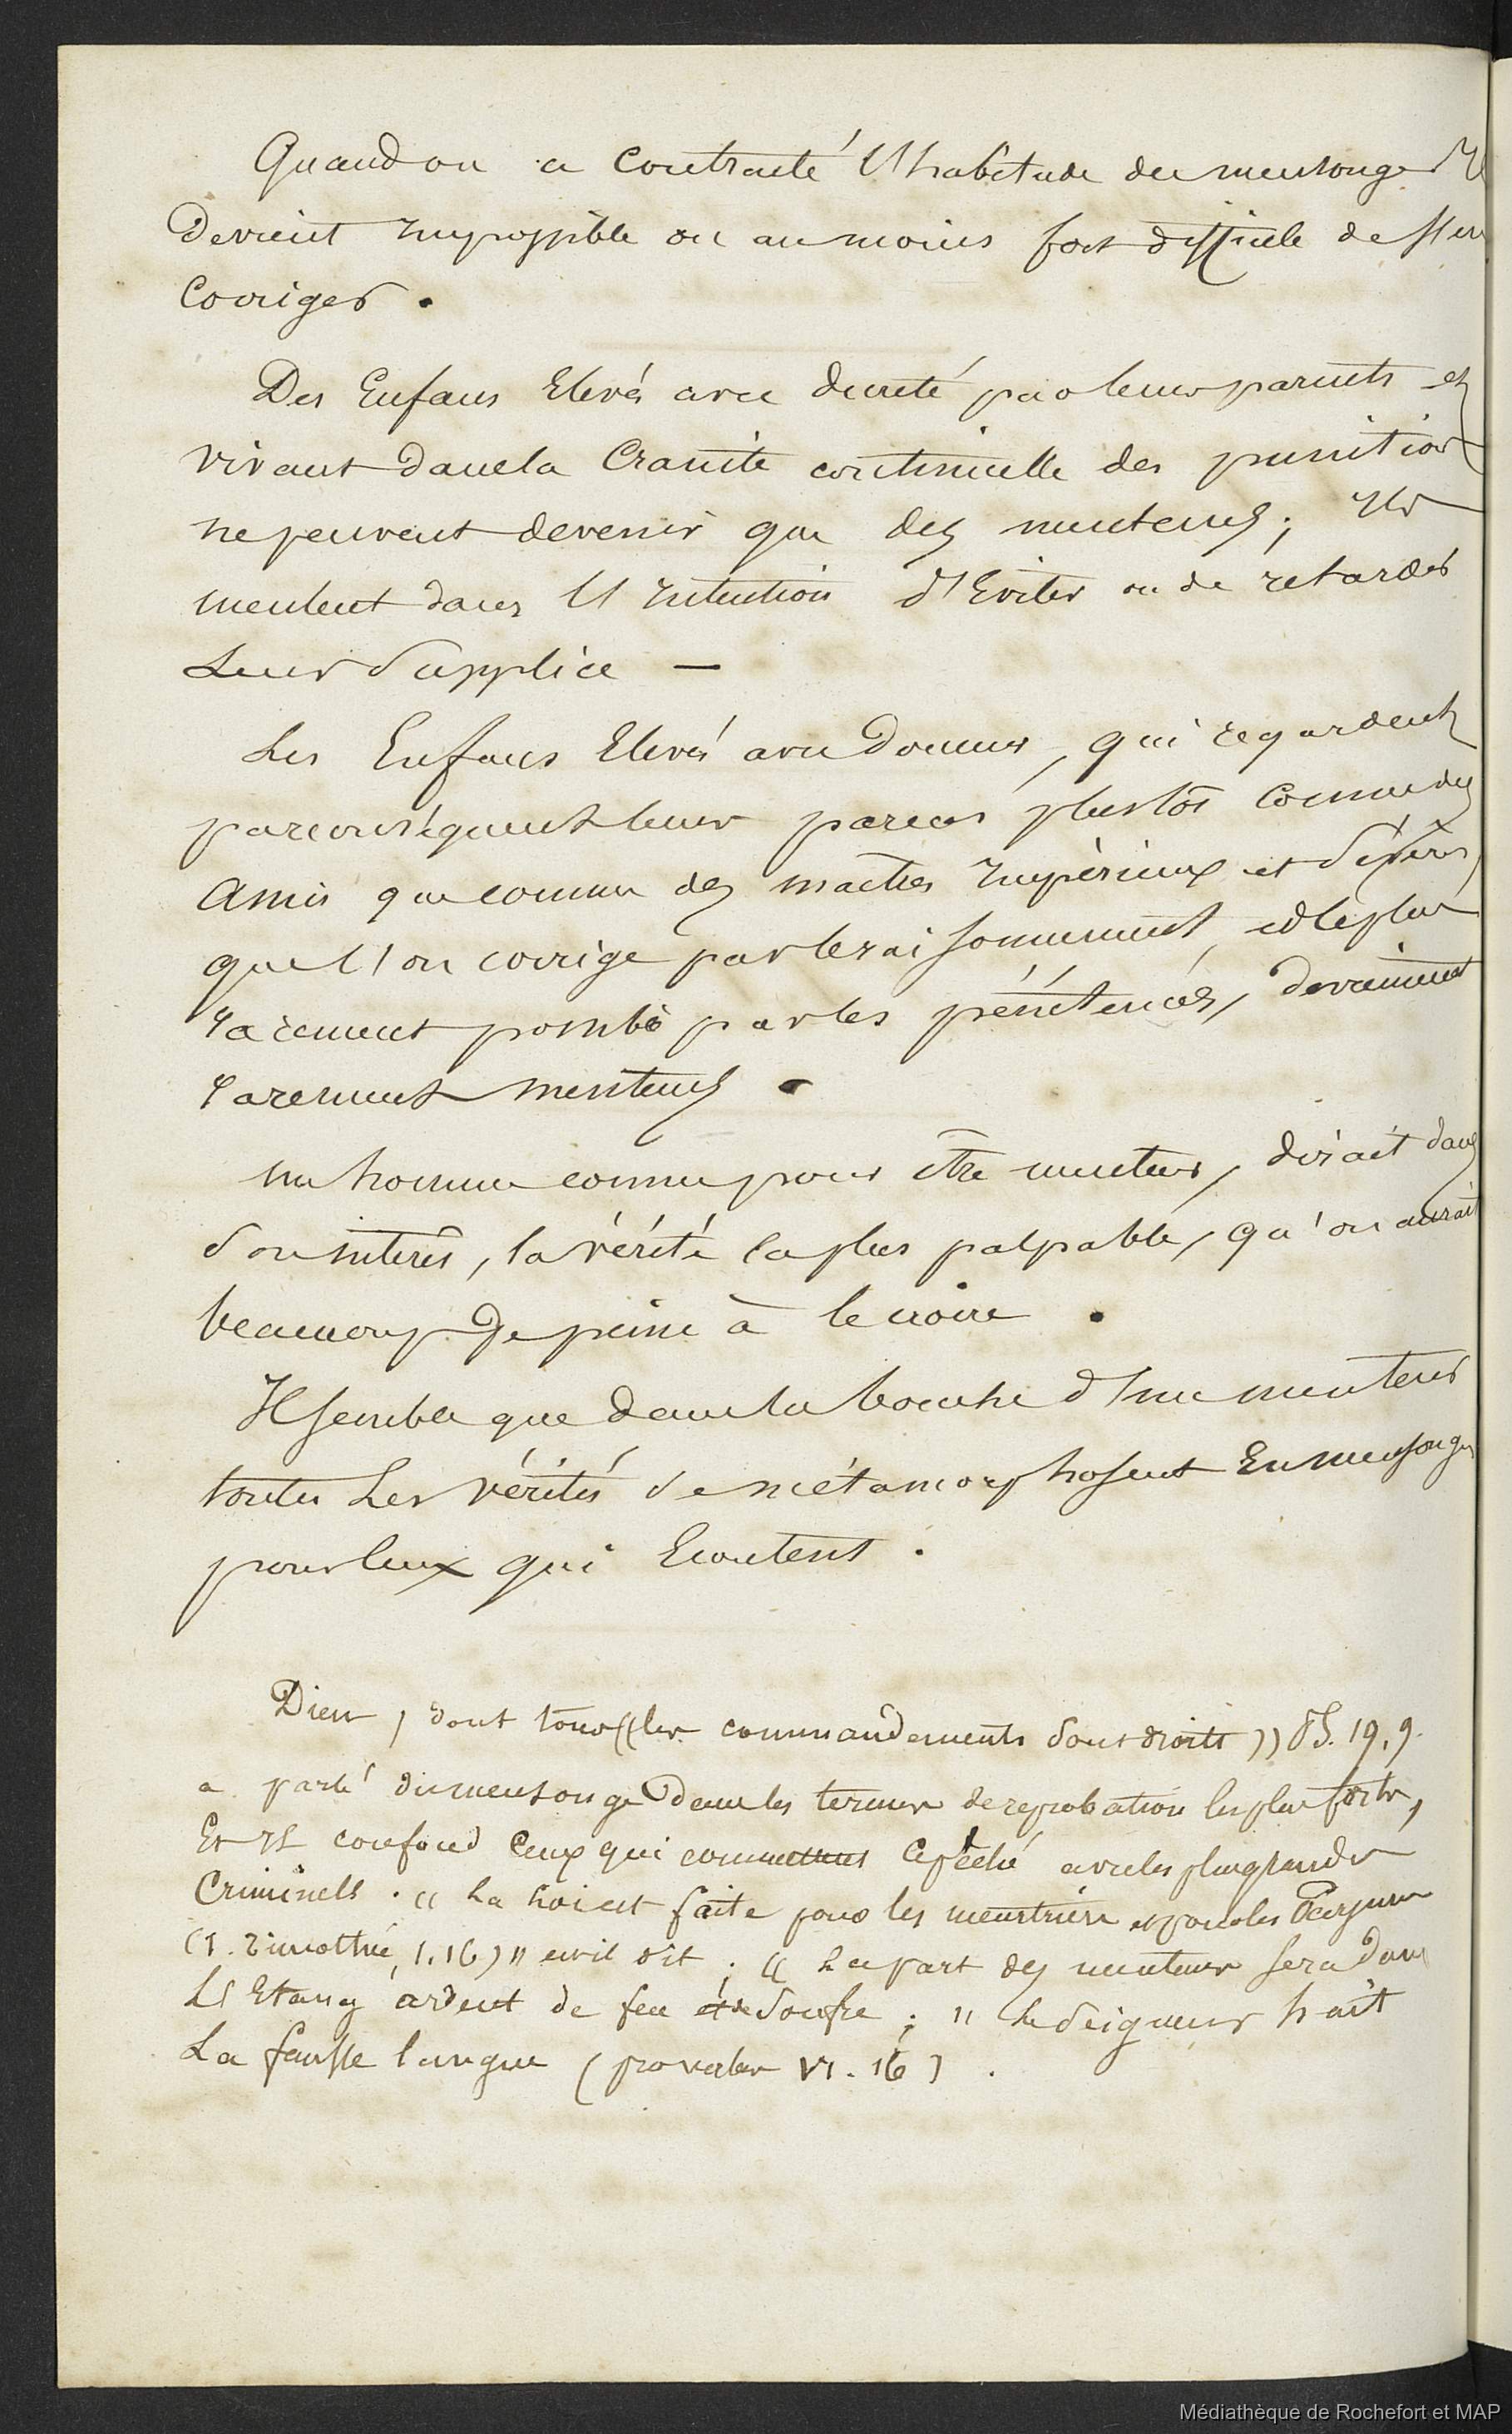 Quand on a Contracté l'habitude du mensonge Il
Devient Impossible ou au moins fort difficile de s'en
Corriger.
Des Enfans Elevés avec dureté par leurs parents et
vivant dans la Crainte continuelle des punitions
ne peuvent devenir que des menteurs; Ils
mentent dans l'Intention d'Eviter ou de retarder
Leur Supplice —
Les Enfans Elevés avec Douceur, qui regardent
par conséquent leurs parens plustôt Comme des
Amis que comme des maîtres Impérieux et Sévères,
que l'on corrige par le raisonnement, et le plus
rarement possible par les pénitences, deviennent
rarement menteurs.
un homme connu pour être menteur, dirait dans
Son intérêt, la vérité la plus palpable, qu'on aurait
beaucoup de peine à le croire.
Il semble que dans la bouche d'un menteur
toutes Les vérités se métamorphosent En mensonges
pour Ceux qui Ecoutent.
Dieu, dont tous (( les commandements sont droits )) PS. 19. 9.
a parlé du mensonge Dans les termes de réprobation les plus forts,
Et Il confond Ceux qui commettent Ce péché avec les plus grands
Criminels. « La Loi est faite pour les meurtriers et pour les Parjures
(1. Timothée, 1. 16) » il dit; « La part des menteurs sera Dans
L'Etang ardent de feu et de Soufre; » Le Seigneur hait
La fausse langue (proverbes VI. 16).
Médiathèque de Rochefort et MAP